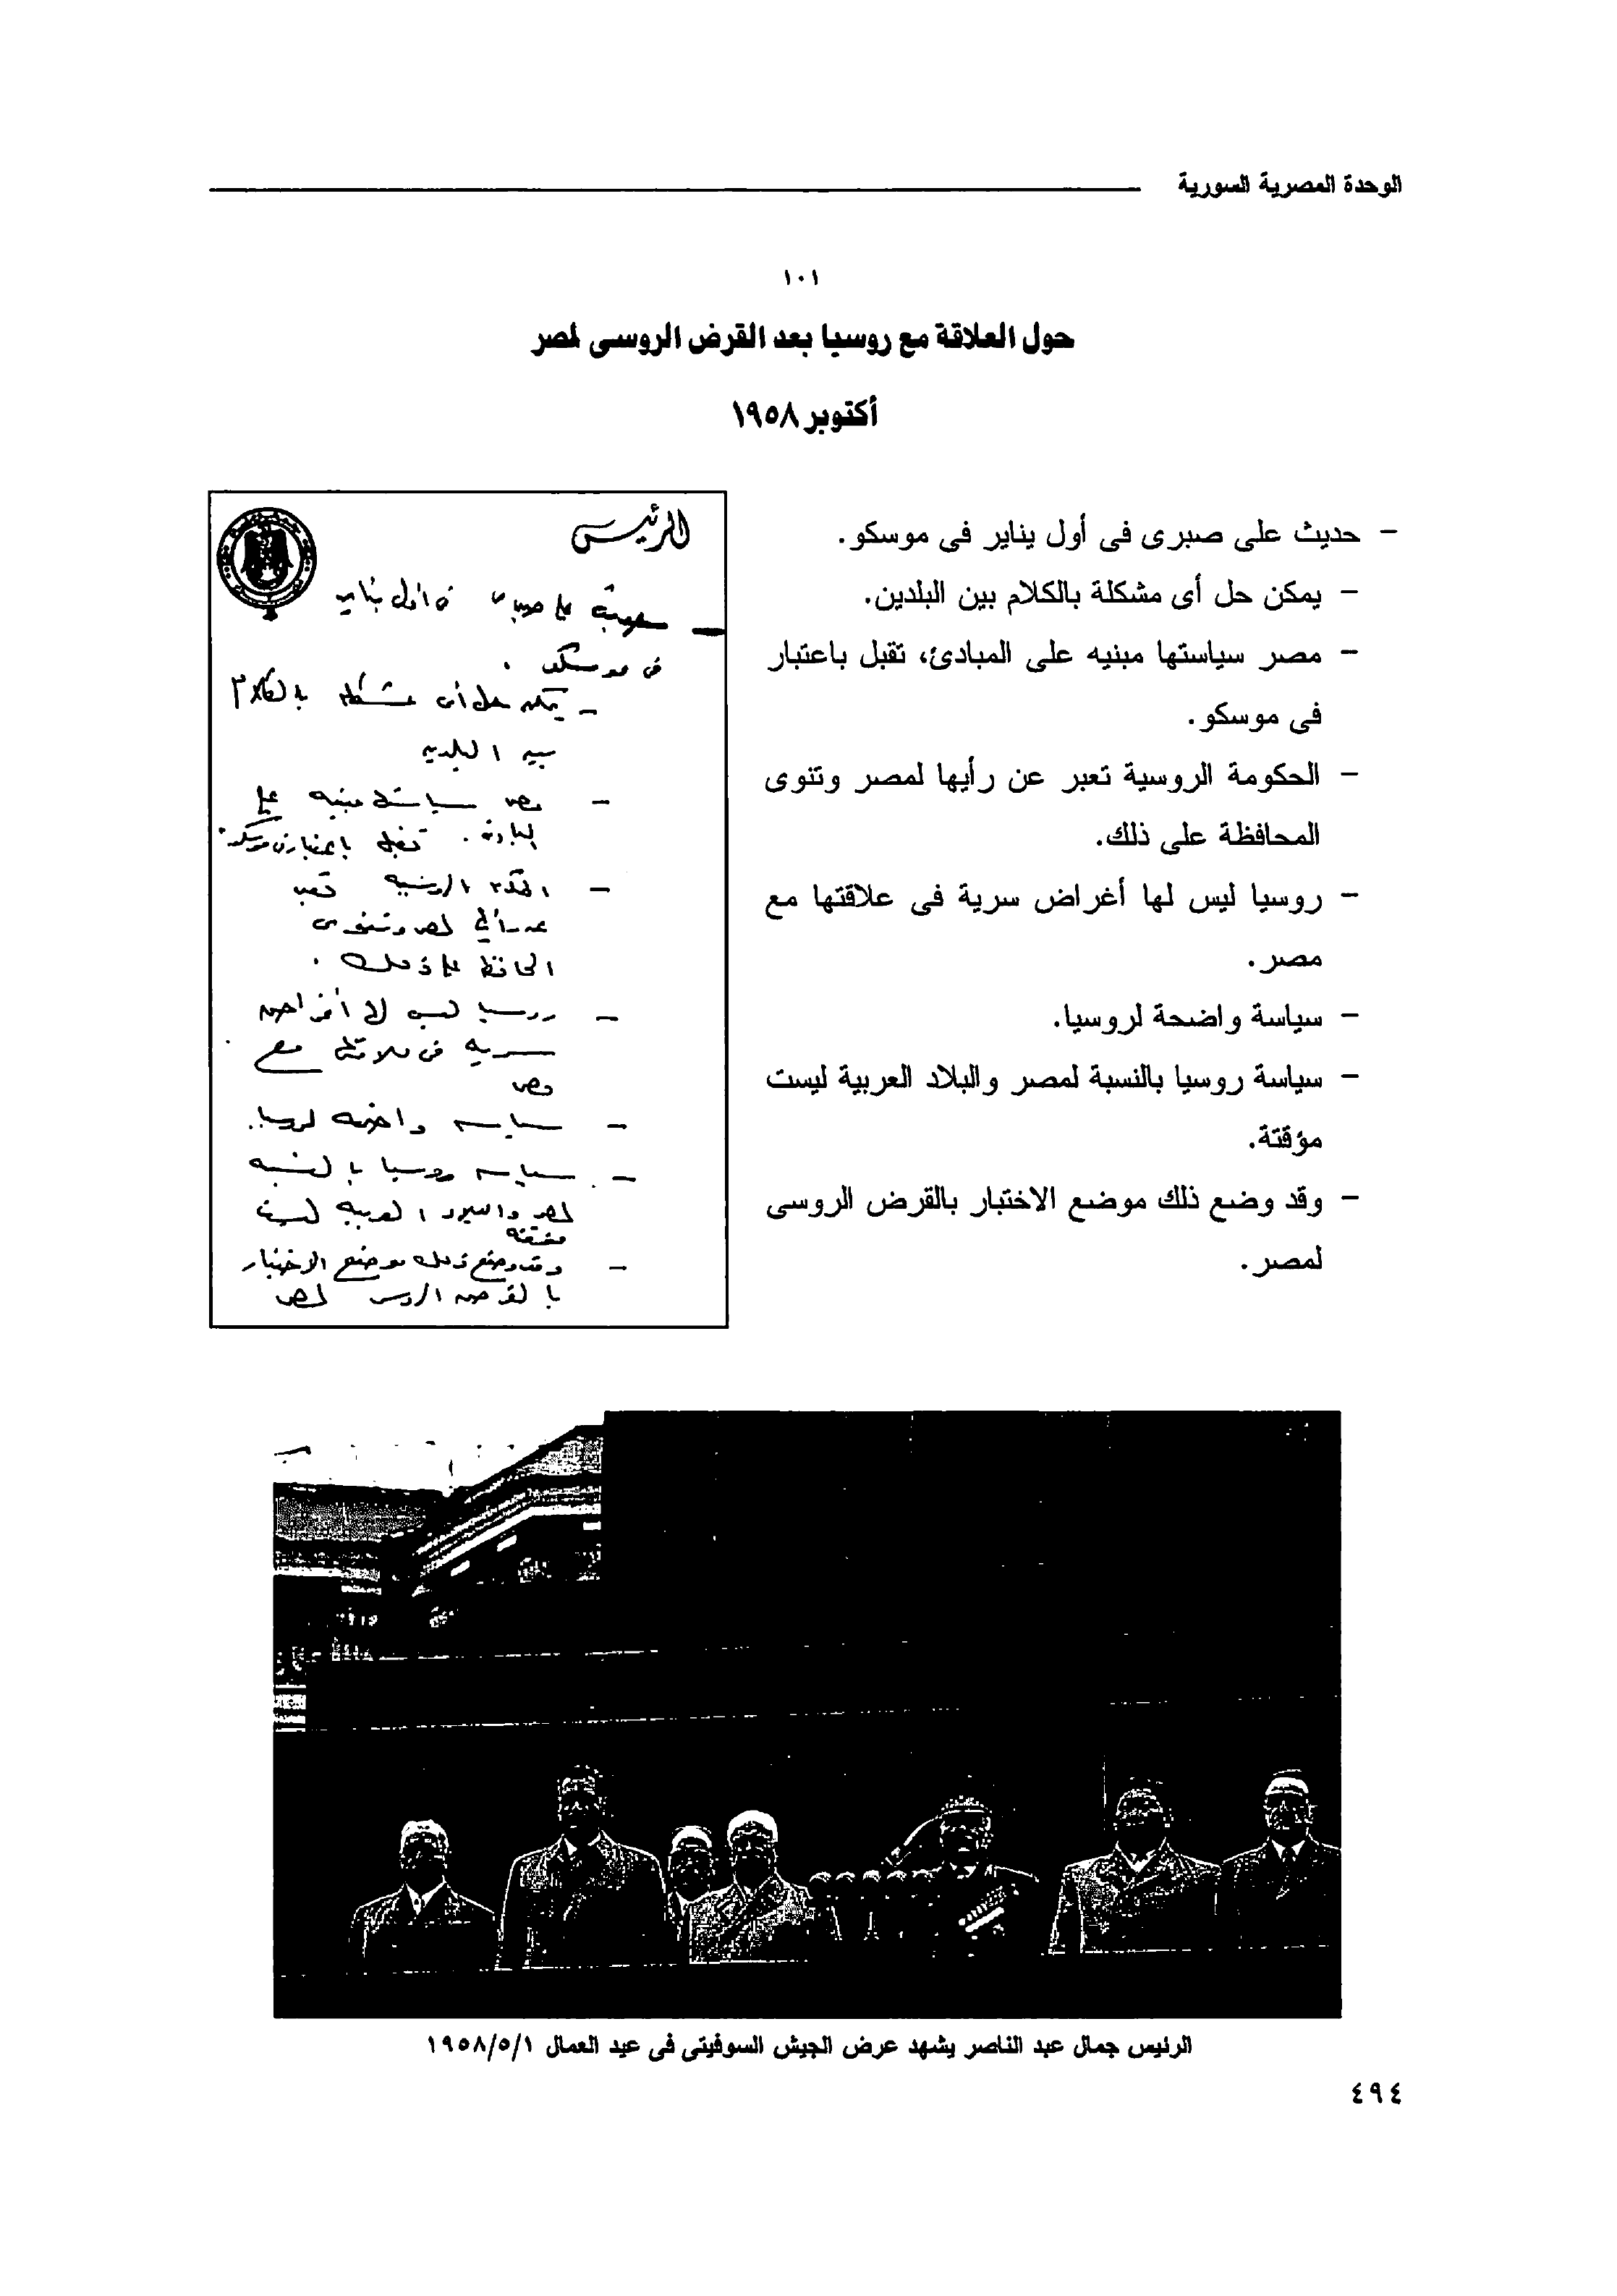 الوحدة المصرية السورية
١٠١
حول العلاقة مع روسيا بعد القرض الروسى لمصر
أكتوبر ١٩٥٨
– حديث على صبرى فى أول يناير فى موسكو.
– يمكن حل أى مشكلة بالكلام بين البلدين.
– مصر سياستها مبنيه على المبادئ، تقبل باعتبار
فى موسكو.
– الحكومة الروسية تعبر عن رأيها لمصر وتنوى
المحافظة على ذلك.
– روسيا ليس لها أغراض سرية فى علاقتها مع
مصر.
– سياسة واضحة لروسيا.
– سياسة روسيا بالنسبة لمصر والبلاد العربية ليست
مؤقتة.
– وقد وضع ذلك موضع الاختبار بالقرض الروسى
لمصر.
الرئيس
– على صبرى فى أول يناير
فى موسكو .
– يمكن حل أى مشكلة بالكلام
بين البلدين
– مصر سياستها مبنيه على
المبادئ . تقبل باعتبار فى موسكو.
– الحكومة الروسيه تعبر
عن رأيها لمصر وتنوى
المحافظة على ذلك .
– روسيا ليس لها أغراض
سريه فى علاقتها مع
مصر
– سياسة واضحه لروسيا.
– سياسة روسيا بالنسبه
لمصر والبلاد العربيه ليست
مؤقته
– وقد وضع ذلك موضع الاختبار
بالقرض الروسى لمصر
الرئيس جمال عبد الناصر يشهد عرض الجيش السوفيتى فى عيد العمال ١٩٥٨/٥/١
٤٩٤